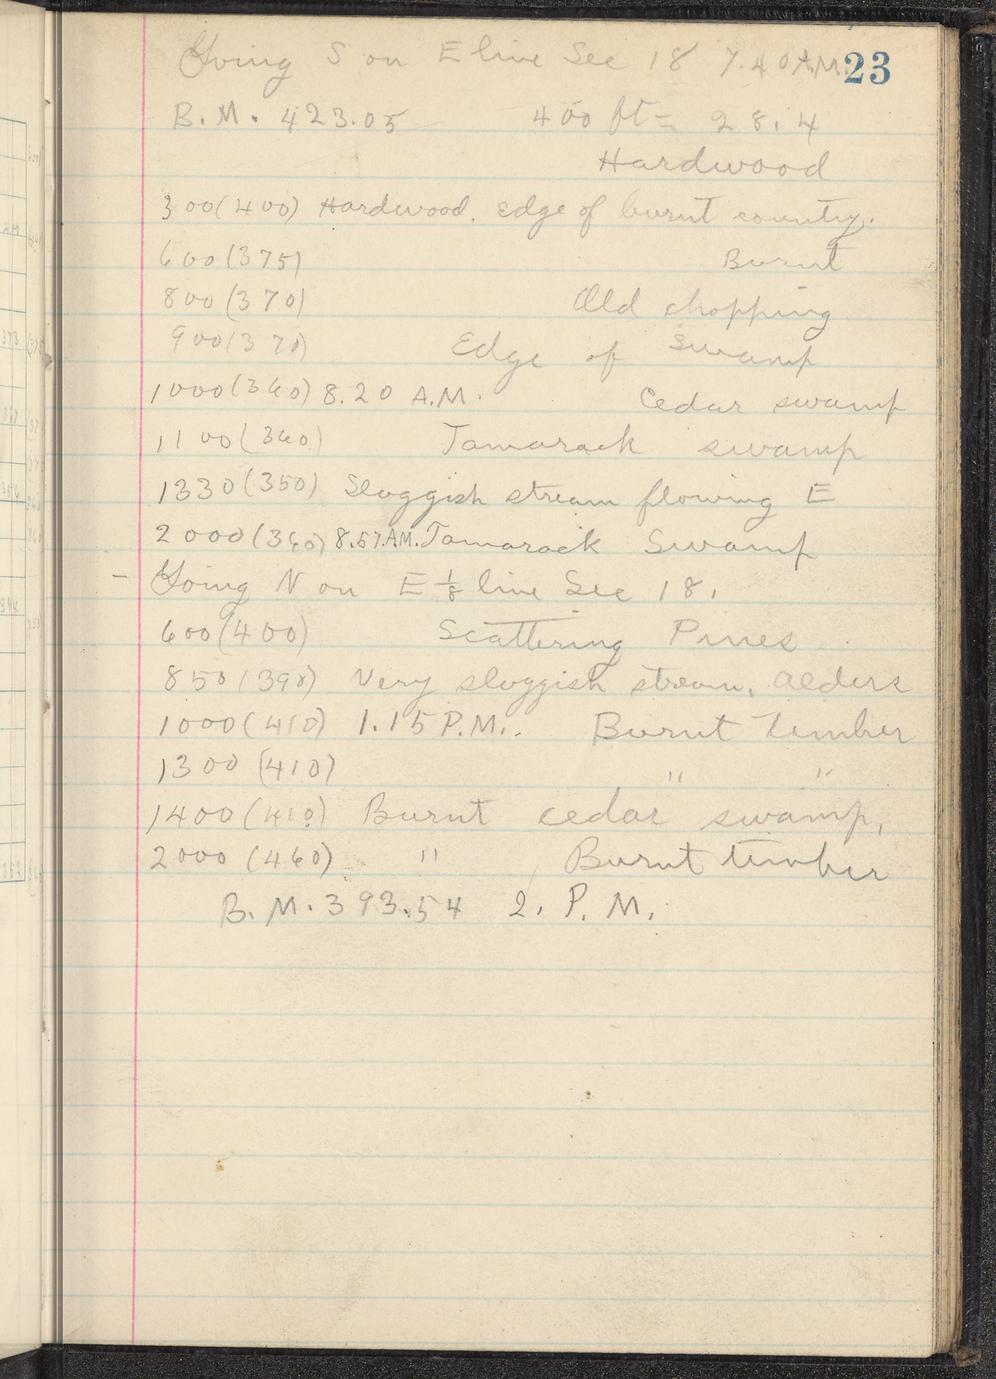 23
Going S on E line Sec 18 7.40 A.M.
B.M. 423.05 400 ft = 28.4
Hardwood
300 (400) Hardwood. Edge of burnt country.
600 (375) Burnt
800 (370) Old chopping
900 (370) Edge of swamp
1000 (360) 8.20 A.M. Cedar swamp
1100 (360) Tamarack swamp
1330 (350) Sluggish stream flowing E
2000 (360) 8.57 A.M. Tamarack Swamp
– Going N on E 1/8 line Sec 18.
600 (400) Scattering Pines
850 (390) Very sluggish stream. Alders
1000 (410) 1.15 P.M. Burnt Timber
1300 (410) " "
1400 (410) Burnt cedar swamp,
2000 (460) " Burnt timber
B.M. 393.54 2. P.M.